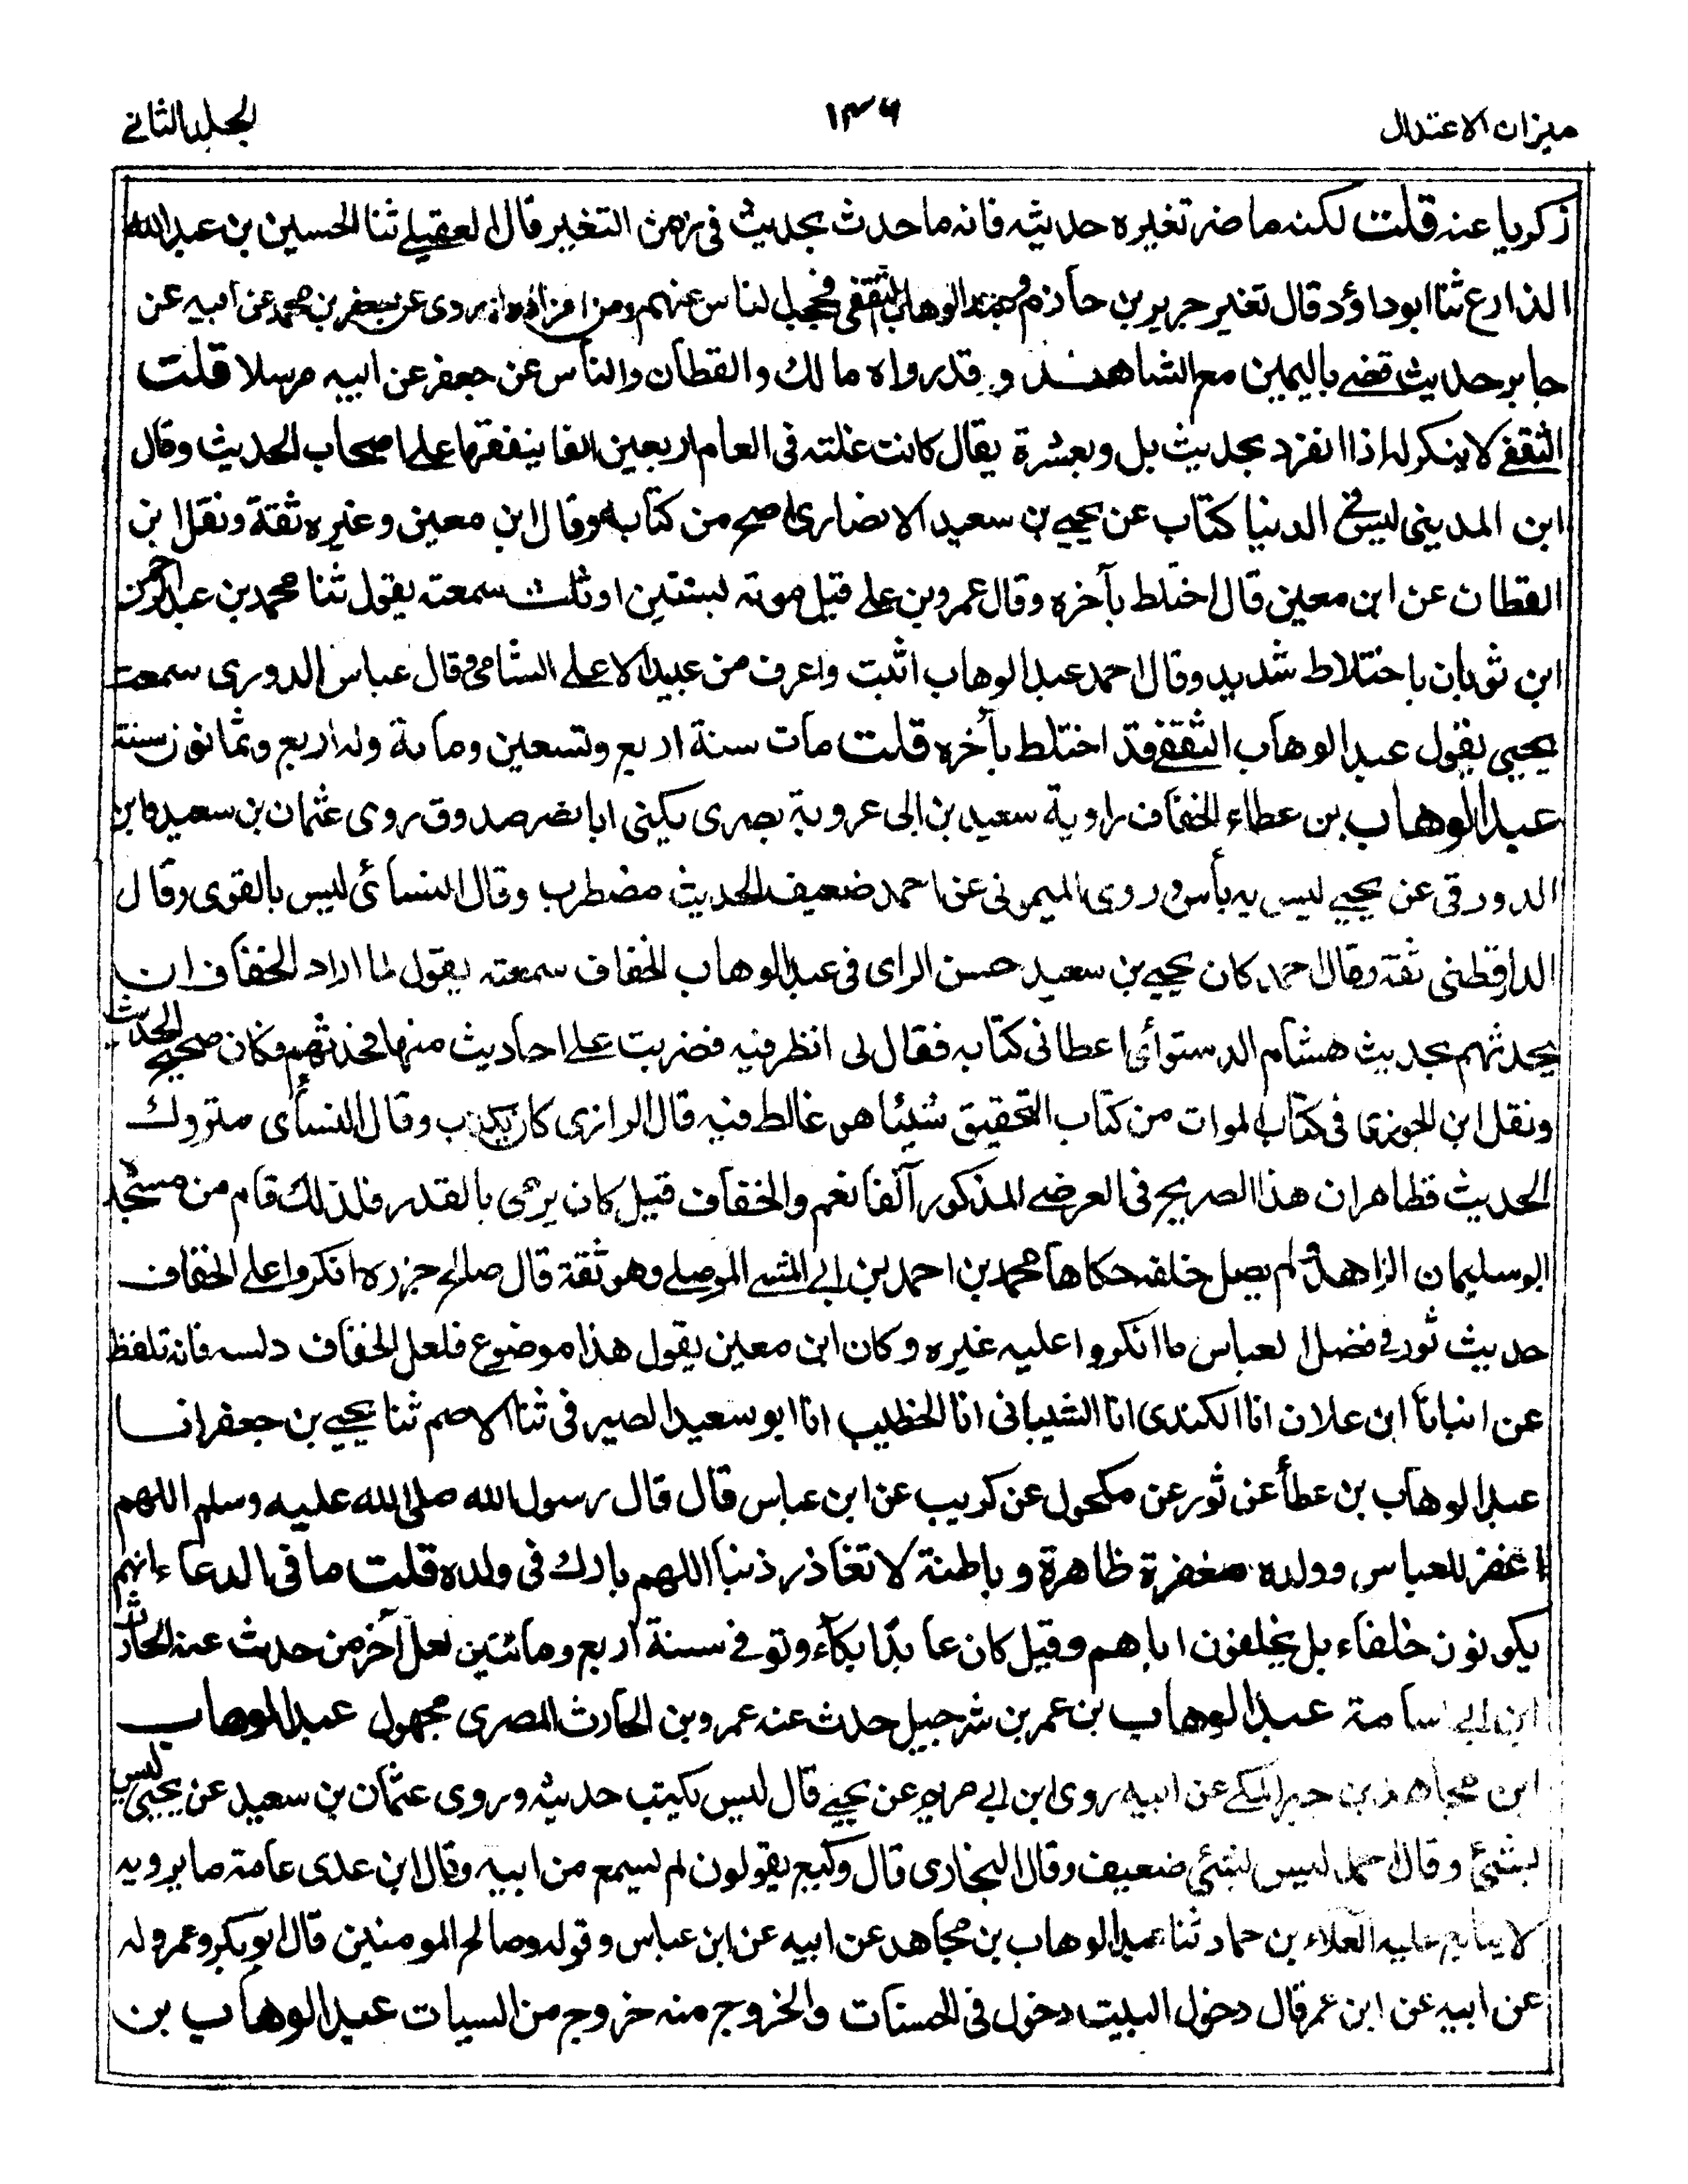 ميزان الاعتدال
١٣٦
الجلد الثاني
زكريا عنه قلت لكنه ما ضر تغيره حديثه فانه ما حدث بحديث في زمن التغير قال العقيلي ثنا الحسين بن عبد الله
الذارع ثنا ابو داؤد قال تغير جرير بن حازم وعبد الوهاب الثقفي فحجب الناس عنهم ومن افراده انه روى عن جعفر بن محمد عن ابيه عن
جابر حديث قضى باليمين مع الشاهد وقد رواه مالك والقطان والناس عن جعفر عن ابيه مرسلا قلت
الثقفي لا ينكر له اذا انفرد بحديث بل وبعشرة يقال كانت غلته في العام اربعين الفا ينفقها على اصحاب الحديث وقال
ابن المديني ليس في الدنيا كتاب عن يحيى بن سعيد الانصاري اصح من كتابه وقال ابن معين وغيره ثقة ونقل ابن
القطان عن ابن معين قال اختلط بآخره وقال عمرو بن علي قبل موته بسنتين او ثلث سمعته يقول ثنا محمد بن عبد الرحمن
ابن ثوبان باختلاط شديد وقال احمد عبد الوهاب اثبت واعرف من عبد الاعلى الشامي وقال عباس الدوري سمعت
يحيى يقول عبد الوهاب الثقفي قد اختلط بآخره قلت مات سنة اربع وتسعين وماىة وله اربع وثمانون سنة
عبد الوهاب بن عطاء الخفاف راوية سعيد بن ابى عروبة بصرى يكنى ابا نصر صدوق روى عثمان بن سعيد وابن
الدورقي عن يحيى ليس به بأس وروى الميموني عن احمد ضعيف الحديث مضطرب وقال النسائي ليس بالقوى وقال
الدارقطني ثقة وقال احمد كان يحيى بن سعيد حسن الراى في عبد الوهاب الخفاف سمعته يقول لما اراد الخفاف ان
يحدثهم بحديث هشام الدستوائى اعطاني كتابه فقال لى انظر فيه فضربت على احاديث منها فحدثهم فكان صحيح الحديث
ونقل ابن الجوزي في كتاب الموات من كتاب التحقيق شيئا هو غالط فيه قال الرازي كان يكذب وقال النسأى متروك
الحديث فظاهر ان هذا الصريح في العرضى المذكور آنفا نعم والخفاف قيل كان يرمى بالقدر فلذلك قام من مسجد
ابو سليمان الزاهد ولم يصل خلفه حكاها محمد بن احمد بن ابي المثنى الموصلي وهو ثقة قال صالح جزره انكروا على الخفاف
حديث ثور في فضل العباس ما انكروا عليه غيره وكان ابن معين يقول هذا موضوع فلعل الخفاف دلسه فانه تلفظ
عن انبانا ابن علان انا الكندى انا الشيبانى انا الخطيب انا ابو سعيد الصيرفى ثنا الاصم ثنا يحيى بن جعفر انا
عبد الوهاب بن عطأ عن ثور عن مكحول عن كريب عن ابن عباس قال قال رسول الله صلى الله عليه وسلم اللهم
اغفر للعباس وولده مغفرة ظاهرة وباطنة لا تغاذر ذنبا اللهم بارك في ولده قلت ما في الدعاء انهم
يكونون خلفاء بل يخلفون اباهم وقيل كان عابدًا بكآء وتوفي سنة اربع ومائتين لعل آخر من حدث عنه الحارث
ابن ابي اسامة عبد الوهاب بن عمر بن شرحبيل حدث عنه عمرو بن الحارث المصرى مجهول عبد الوهاب
ابن مجاهد بن جبر المكي عن ابيه روى ابن ابي مريم عن يحيى قال ليس يكتب حديثه وروى عثمان بن سعيد عن يحيى ليس
بشئ وقال احمد ليس بشئ ضعيف وقال البخارى قال وكيع يقولون لم يسمع من ابيه وقال ابن عدى عامة ما يرويه
لا يتابع عليه العلاء بن حماد ثنا عبد الوهاب بن مجاهد عن ابيه عن ابن عباس وقوله وصالح المومنين قال ابو بكر وعمر وله
عن ابيه عن ابن عمر قال دخول البيت دخول في الحسنات والخروج منه خروج من السيات عبد الوهاب بن